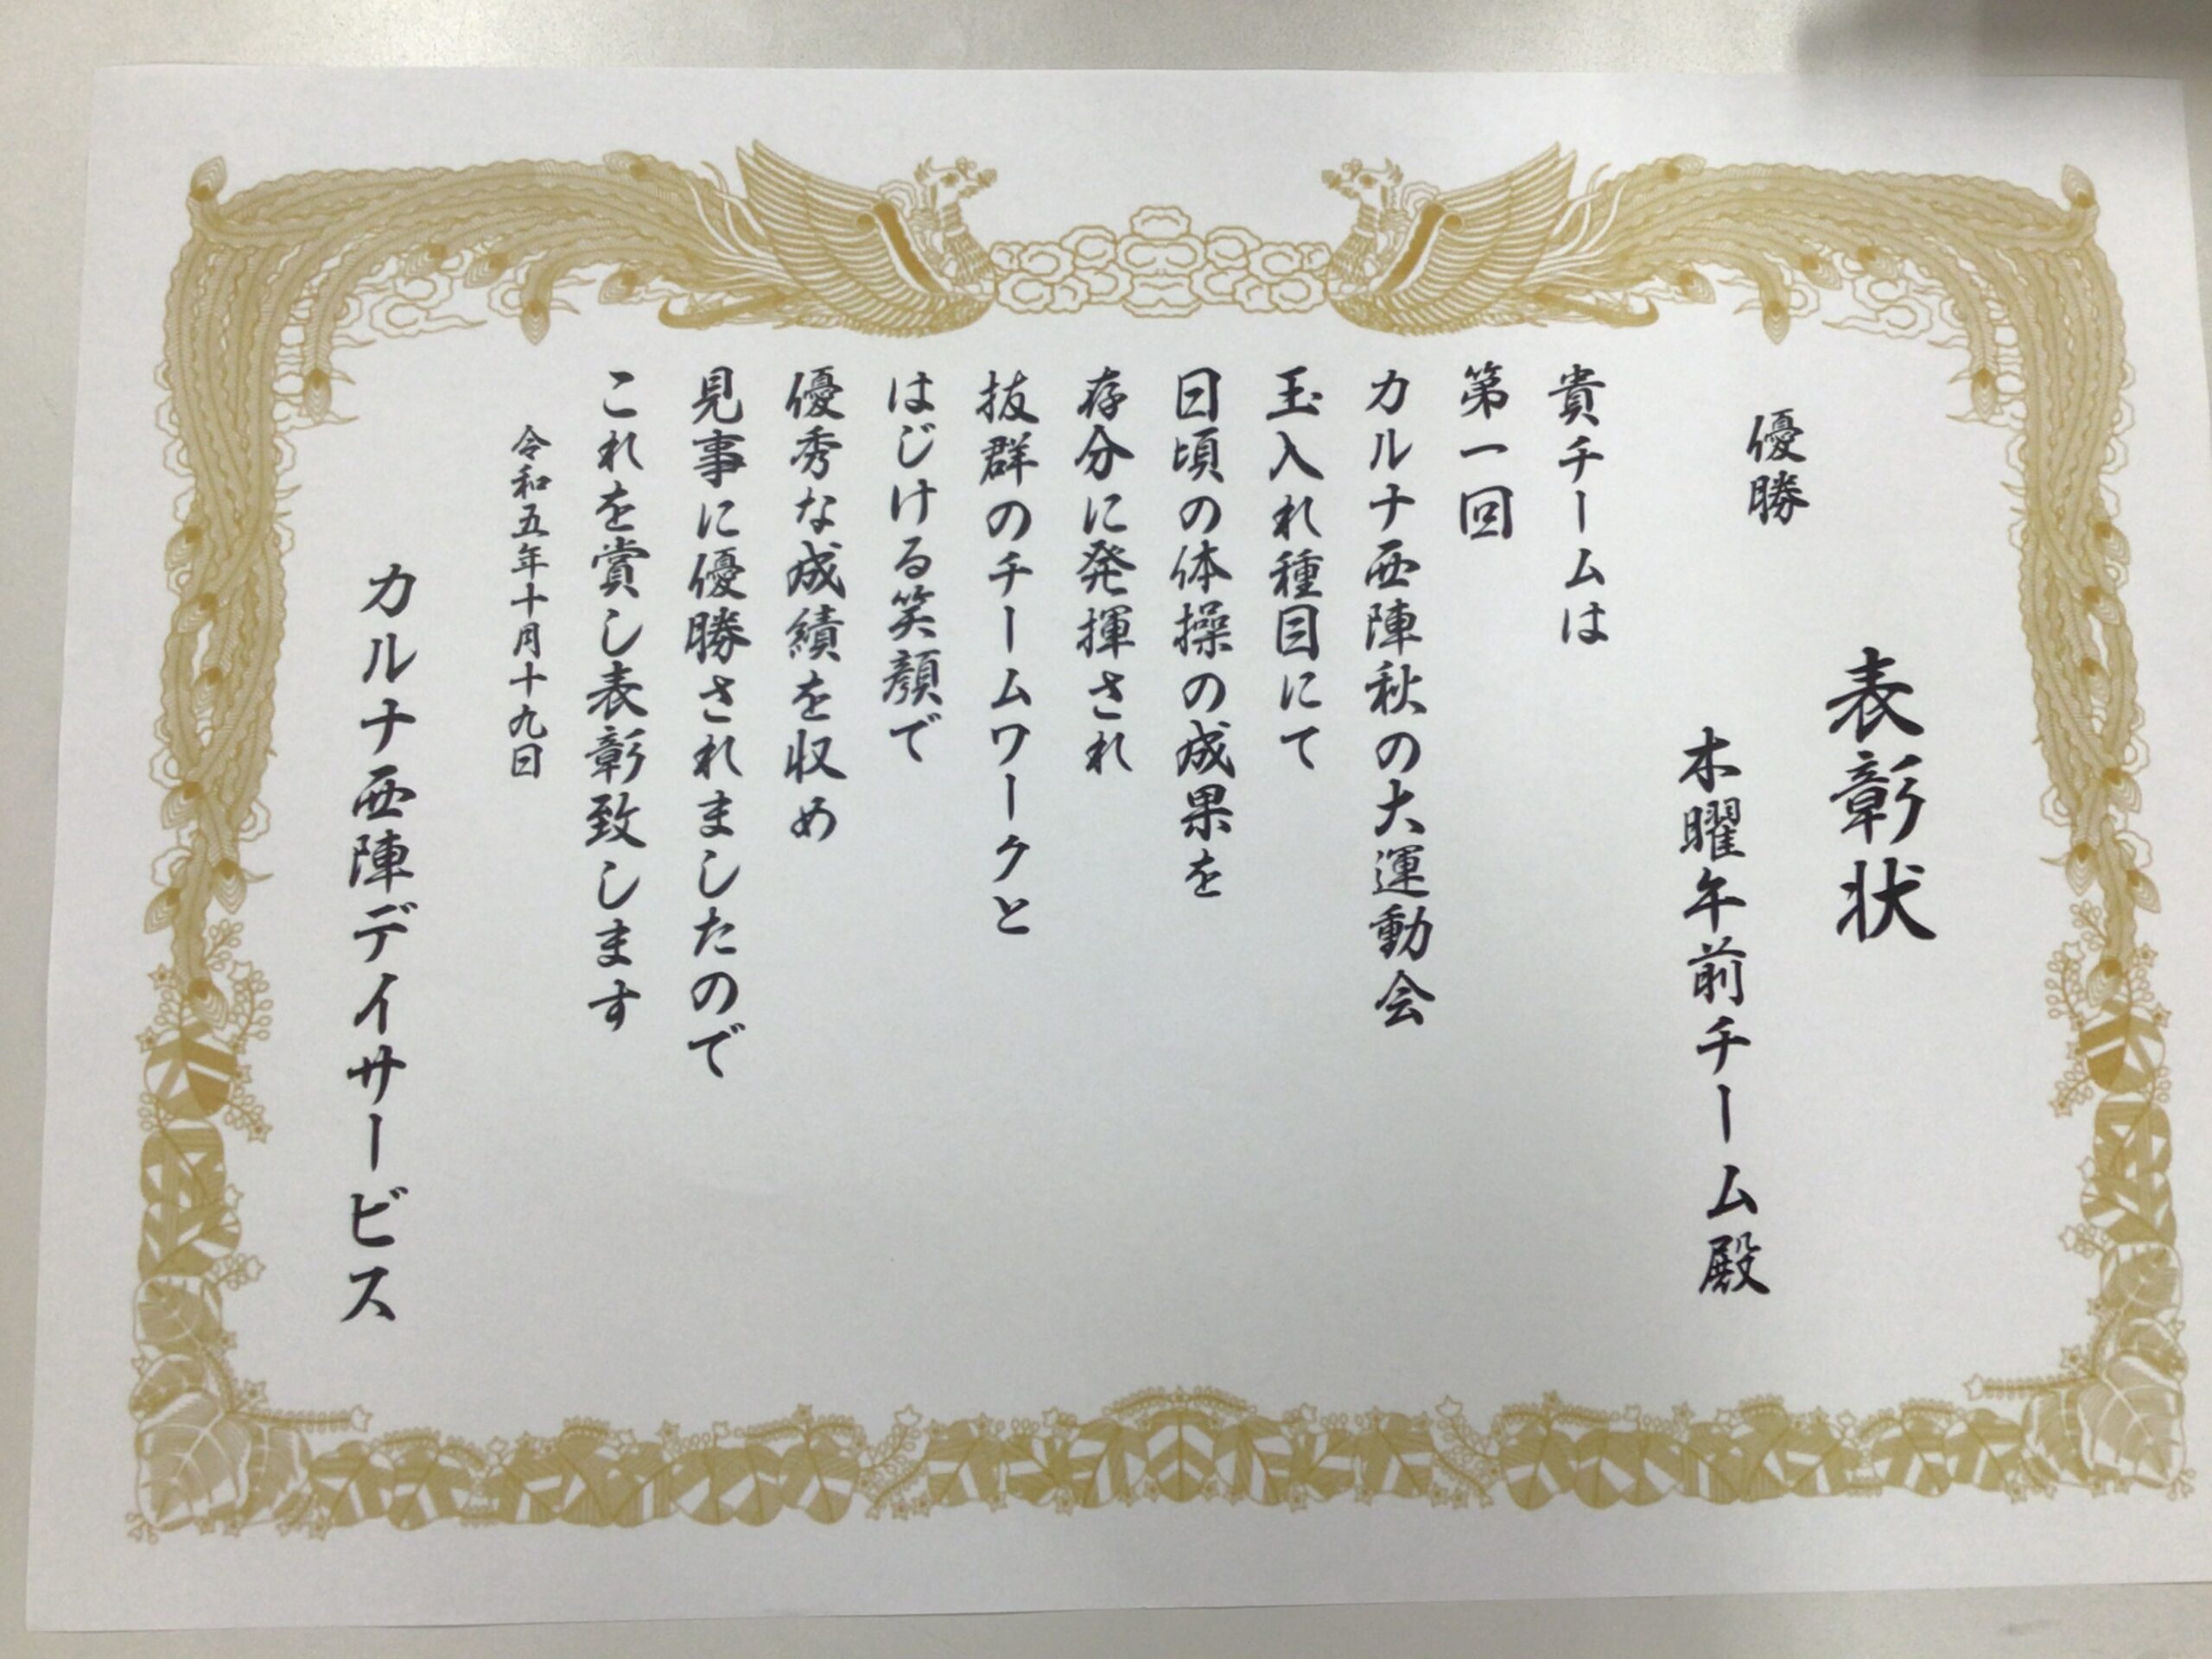 表彰状
優勝
木曜午前チーム殿
貴チームは
第一回
カルナ西陣秋の大運動会
玉入れ種目にて
日頃の体操の成果を
存分に発揮され
抜群のチームワークと
はじける笑顔で
優秀な成績を収め
見事に優勝されましたので
これを賞し表彰致します
令和五年十月十九日
カルナ西陣デイサービス